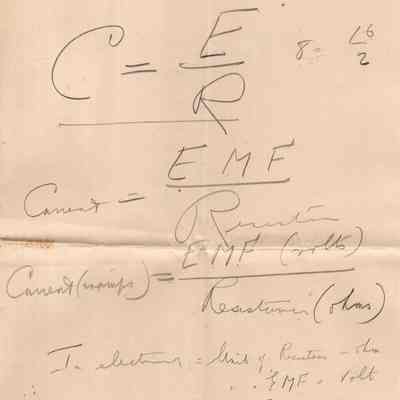 C = E / R
8 = 16 / 2
Current = E M F / Resistance
Current (in amps) = E M F (volts) / Resistance (ohms)
In electricity = Unit of Resistance - ohm
" " E M F = Volt